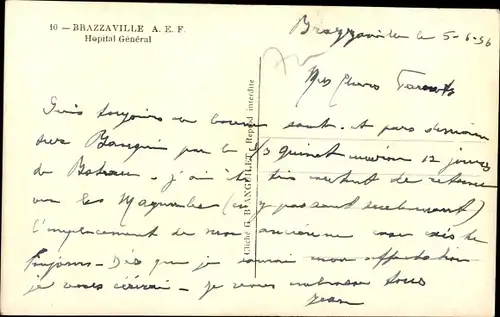 10 — BRAZZAVILLE A. E. F.
Hopital Général
Brazzaville le 5-6-56
Mes Chers Parents
Suis toujours en bonne santé et pars demain
sur Bangui par le 12 jours
de Bateau - j'ai été très content de
voir les (en y passant seulement)
l'emplacement de mon ancienne existe
toujours - Dès que je mon affectation
je vous écrirai - je vous embrasse tous
Jean
Cliché G. BLANGUILLET, Reprod. interdite